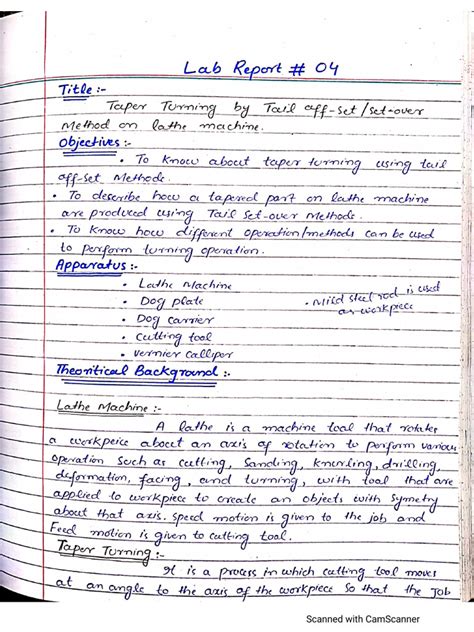 Lab Report # 04
Title :-
Taper Turning by Tail off-set/set-over
Method on lathe machine.
Objectives :-
• To know about taper turning using tail
off-set Methode.
• To describe how a tapered part on lathe machine
are produced using Tail Set-over Methode.
• To know how different operation/methods can be used
to perform turning operation.
Apparatus :-
• Lathe Machine
• Dog plate
• Dog carrier
• Cutting tool
• Vernier calliper
• Mild steel rod is used
as workpiece
Theoritical Background :-
Lathe Machine :-
A lathe is a machine tool that rotates
a workpeice about an axis of rotation to perform various
operation such as cutting, sanding, knurling, drilling,
deformation, facing, and turning, with tool that are
applied to workpiece to create an objects with symetry
about that axis. Speed motion is given to the job and
Feed motion is given to cutting tool.
Taper Turning :-
It is a process in which cutting tool moves
at an angle to the axis of the workpiece so that the job
Scanned with CamScanner